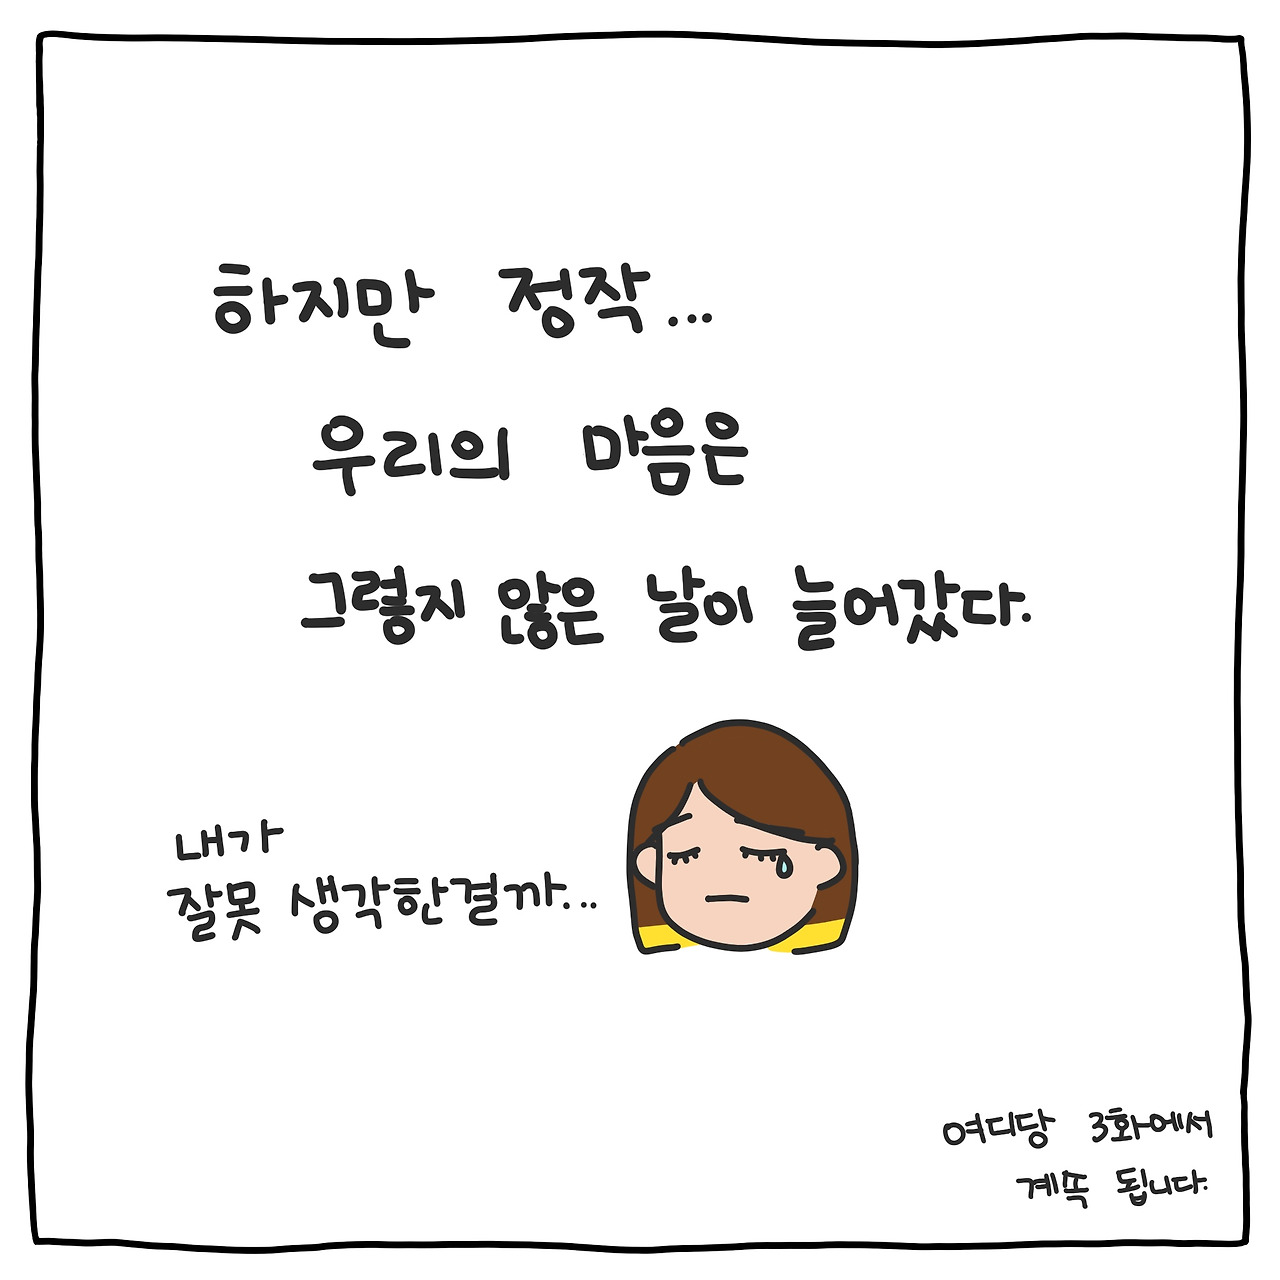 하지만 정작...
우리의 마음은
그렇지 않은 날이 늘어갔다.
내가
잘못 생각한걸까...
여디당 3화에서
계속 됩니다.